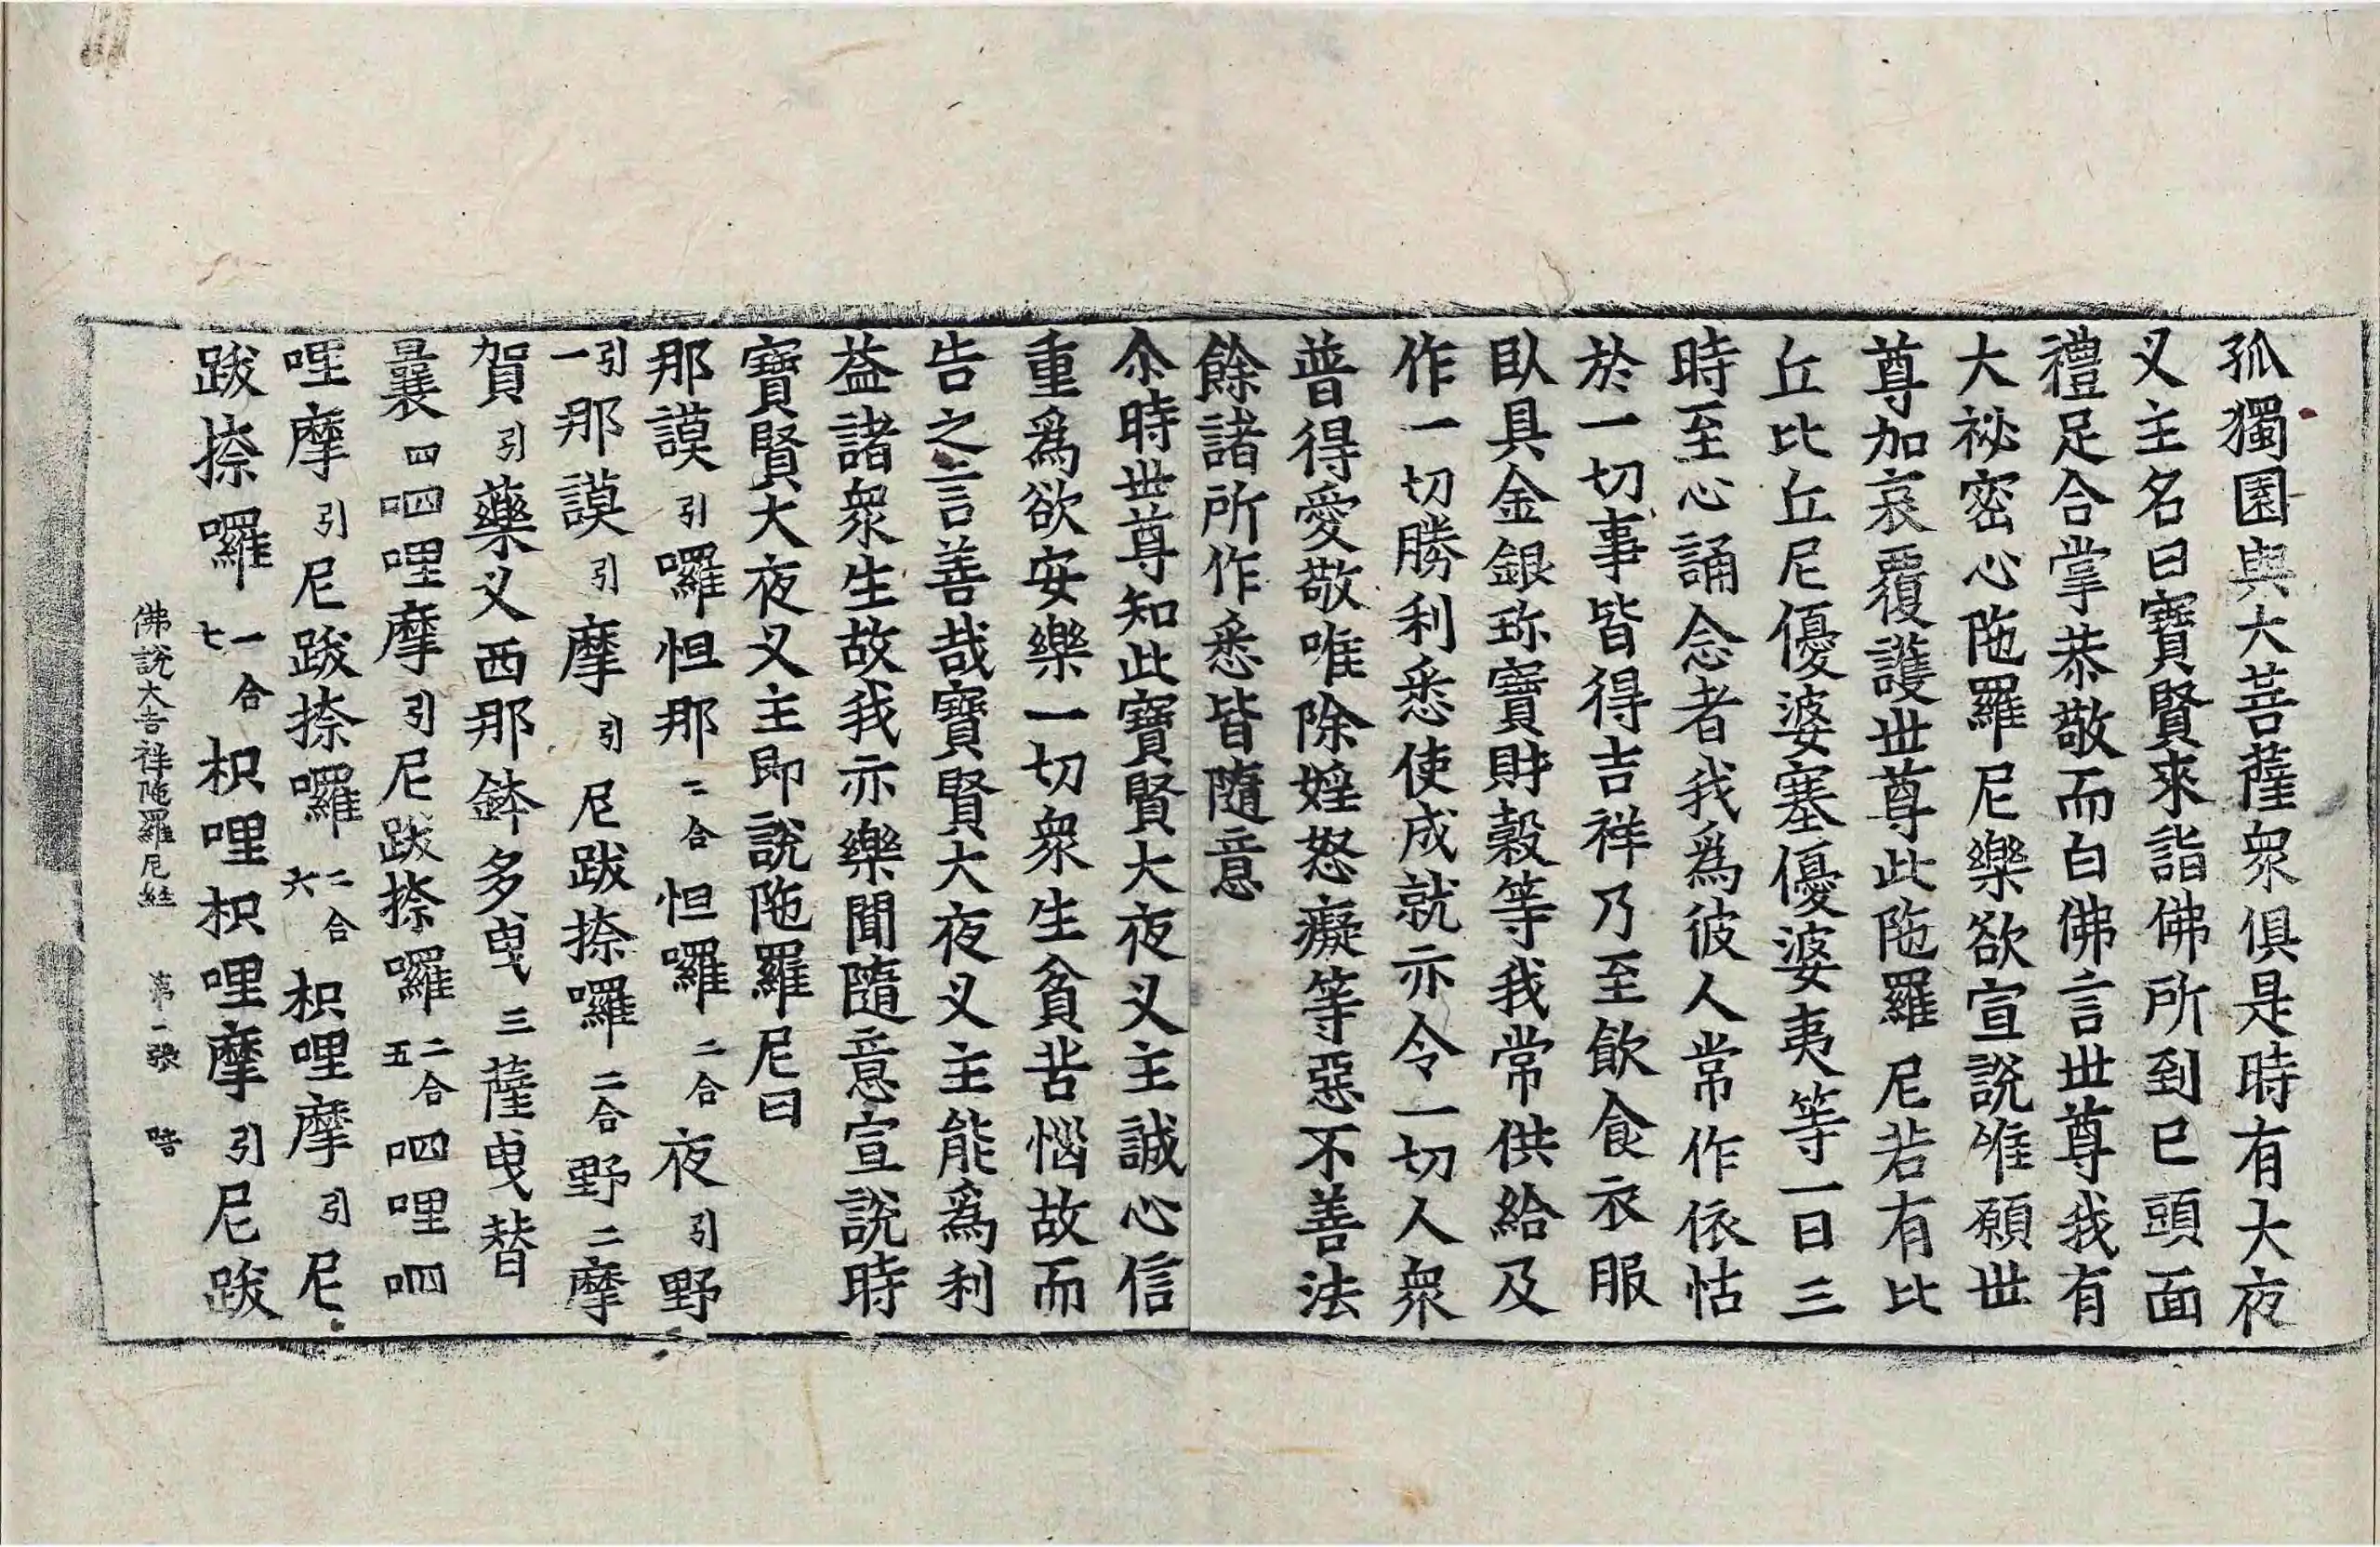 孤獨園與大菩薩衆俱是時有大夜
叉主名曰寶賢來詣佛所到已頭面
禮足合掌恭敬而白佛言世尊我有
大祕密心陁羅尼樂欲宣說唯願世
尊加哀覆護世尊此陁羅尼若有比
丘比丘尼優婆塞優婆夷等一日三
時至心誦念者我爲彼人常作依怙
於一切事皆得吉祥乃至飮食衣服
臥具金銀珎寶財穀等我常供給及
作一切勝利悉使成就亦令一切人衆
普得愛敬唯除婬怒癡等惡不善法
餘諸所作悉皆隨意
尒時世尊知此寶賢大夜叉主誠心信
重爲欲安樂一切衆生貧苦惱故而
告之言善哉寶賢大夜叉主能爲利
益諸衆生故我亦樂聞隨意宣說時
寶賢大夜叉主即說陁羅尼曰
那謨引囉怛那二合怛囉二合夜引野
引一那謨引摩引尼跋捺囉二合野二摩
賀引藥叉西那鉢多曳三薩曳替
曩四呬哩摩引尼跋捺囉二合五呬哩呬
哩摩引尼跋捺囉二合六枳哩摩引尼
跋捺囉一合七枳哩枳哩摩引尼跋
佛說大吉祥陁羅尼經 第二張